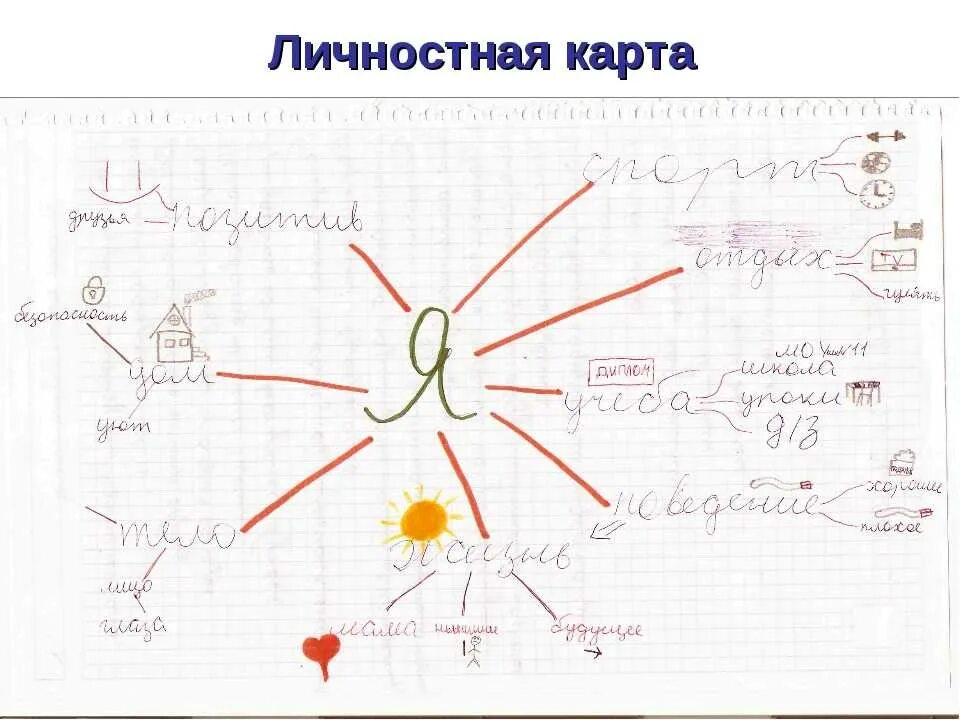 Личностная карта
спорт
друзья
позитив
отдых
TV
гулять
безопасность
Я
дом
уют
ДИПЛОМ
учеба
школа
уроки
д/з
поведение
хорошее
плохое
тело
лицо
глаза
жизнь
мама
будущее